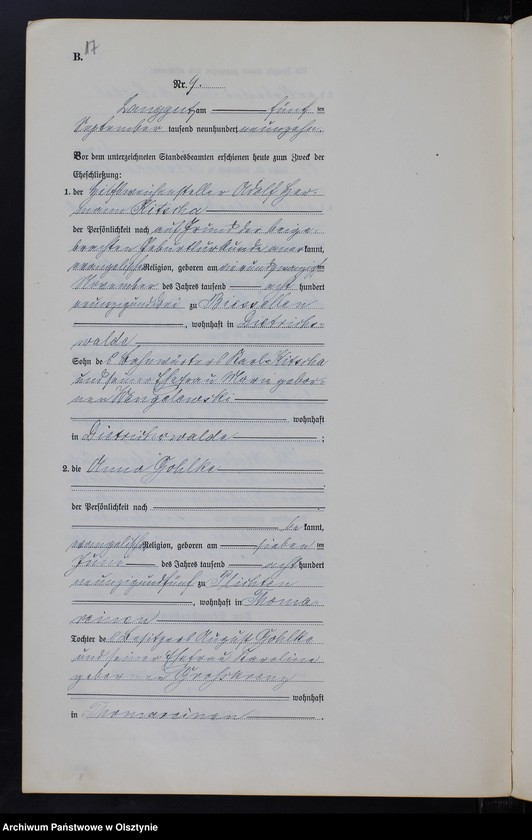 B. 17
Nr. 9.
Langgut, am fünf ten
September tausend neunhundert neunzehn.
Vor dem unterzeichneten Standesbeamten erschienen heute zum Zweck der
Eheschließung:
1. der Hilfsweichensteller Adolf Her-
mann Kitscha
der Persönlichkeit nach auf Grund der beige-
brachten Geburtsurkunde aner kannt,
evangelischer Religion, geboren am vierundzwanzigsten
November des Jahres tausend acht hundert
neunzigunddrei zu Biessellen
, wohnhaft in Dietrichs-
walde,
Sohn des Bahnwärters Karl Kitscha
und seiner Ehefrau gebore-
nen Wengelowski
wohnhaft
in Dietrichswalde ;
2. die Anna Gohlke
der Persönlichkeit nach
be kannt,
evangelischer Religion, geboren am sieben ten
Juni des Jahres tausend acht hundert
neunzigundfünf zu Plichten
, wohnhaft in Thoma-
reinen
Tochter des Besitzers August Gohlke
und seiner Ehefrau Karoline
geborenen
wohnhaft
in Thomareinen .
Archiwum Państwowe w Olsztynie